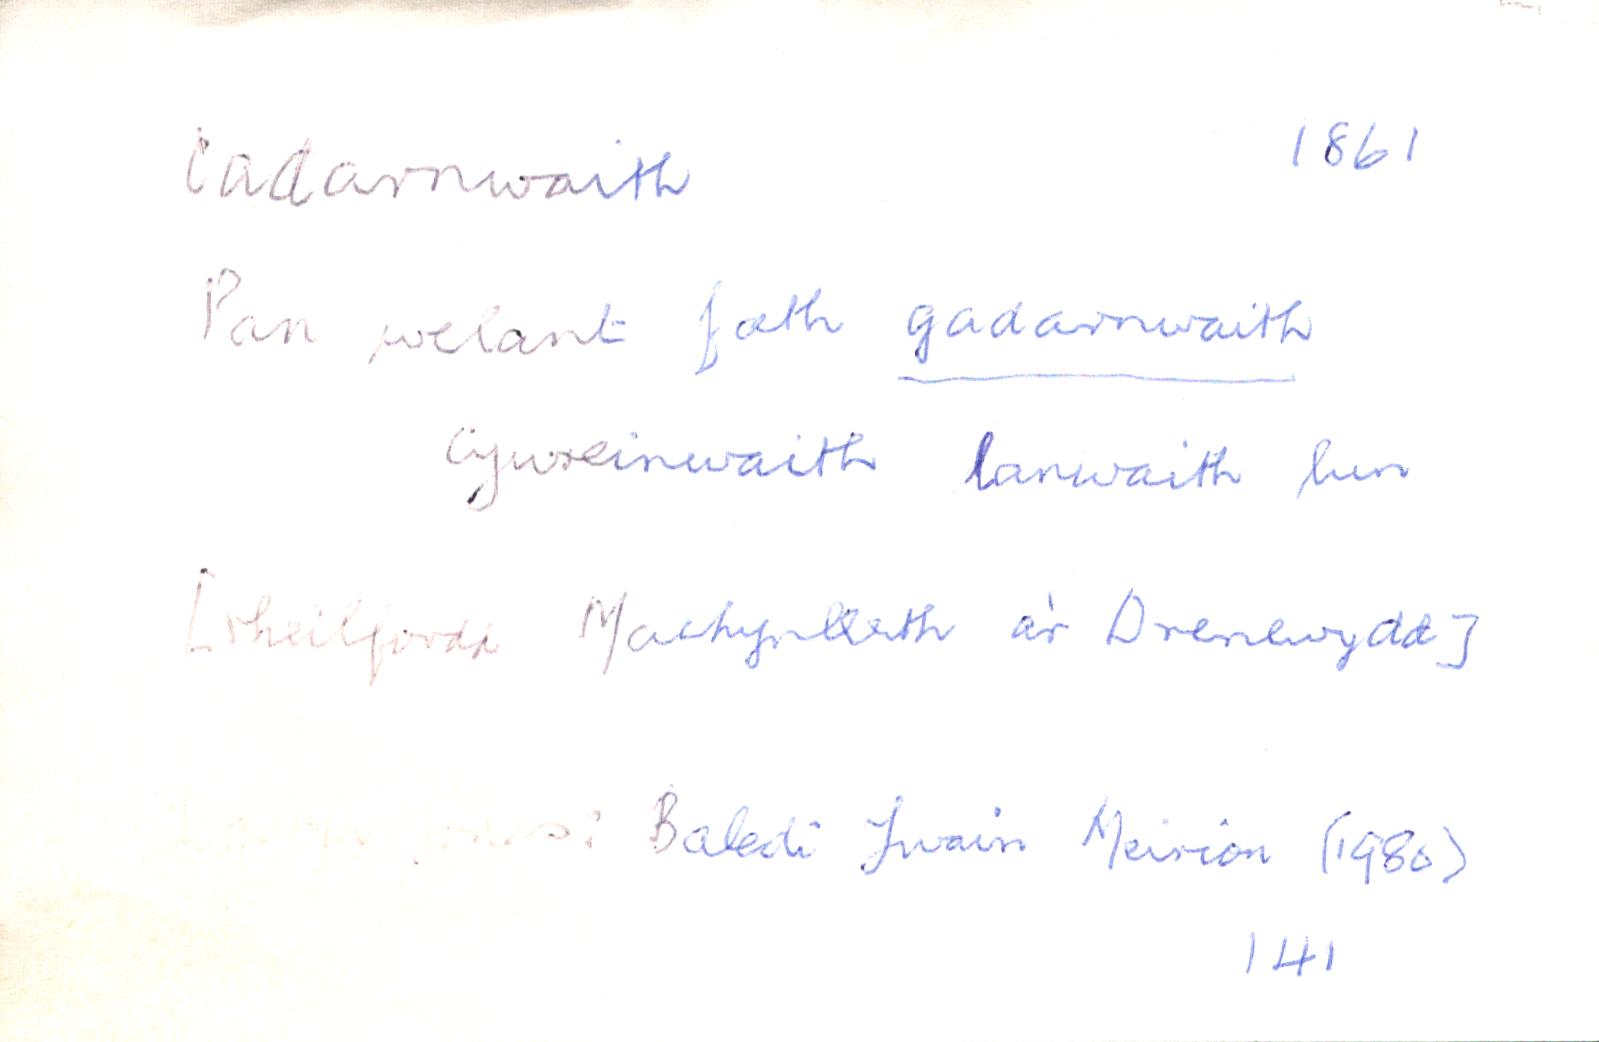 cadarnwaith 1861
Pan welant fath gadarnwaith
cywreinwaith lanwaith lun
[rheilfordd Machynlleth a'r Drenewydd]
Baledi Ywain Meirion (1980)
141